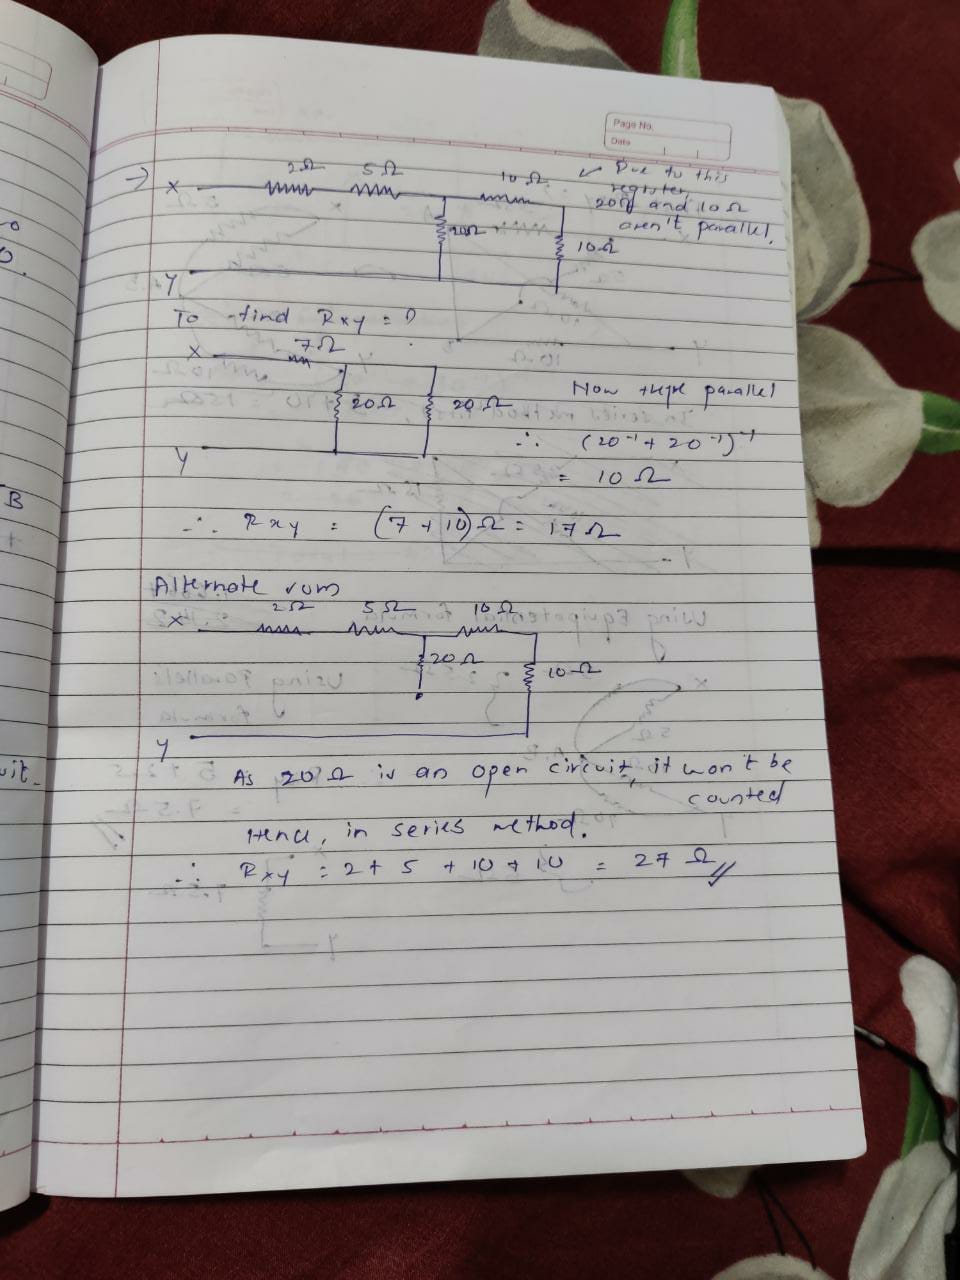 Page No.
Date
→ X 2Ω 5Ω 10Ω ✓ Due to this
register,
20Ω and 10Ω
aren't parallel.
20Ω
10Ω
Y
To find Rxy = ?
X 7Ω
20Ω 20Ω Now they're parallel
∴ (20⁻¹ + 20⁻¹)⁻¹
Y
= 10Ω
∴ Rxy = (7 + 10)Ω = 17Ω
Alternate sum
X 2Ω 5Ω 10Ω
20Ω
10Ω
Y
As 20Ω is an open circuit, it won't be
counted
Hence, in series method.
∴ Rxy = 2 + 5 + 10 + 10 = 27Ω //
B
+
uit.